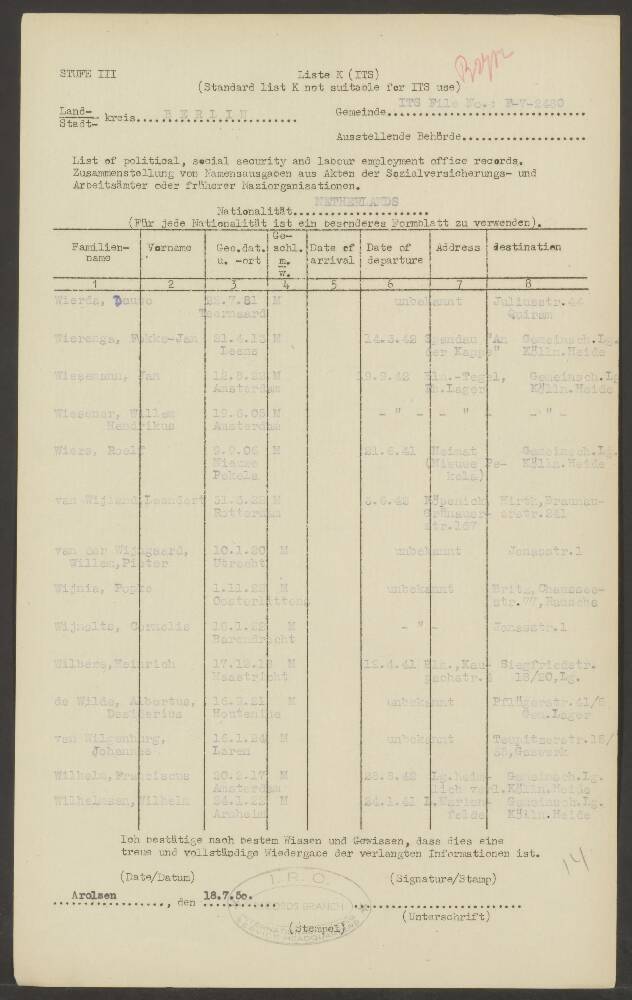 Bop
STUFE III
Liste K (ITS)
(Standard list K not suitable for ITS use)
Land-
Stadt- kreis.....BERLIN.....
ITS File No.: F-V-2480
Gemeinde.....
Ausstellende Behörde.....
List of political, social security and labour employment office records.
Zusammenstellung von Namensausgaben aus Akten der Sozialversicherungs- und
Arbeitsämter oder früherer Naziorganisationen.
NETHERLANDS
Nationalität.....
(Für jede Nationalität ist ein besonderes Formblatt zu verwenden).
Familien-name Vorname Geo.dat. u. -ort Ge-schl. m. w. Date of arrival Date of departure Address destination
1 2 3 4 5 6 7 8
Wierda, Douwo 22.7.81 M unbekannt Juliusstr.44
Quiram
Wierenga, Fokke-Jan 21.4.13 M 14.3.42 Spandau "An Gemeinsch.Lg.
Leens der Kappe" Kölln.Heide
Wiesemann, Jan 12.8.22 M 9.9.42 Bln.-Tegel, Gemeinsch.Lg
Amsterdam Lager Kölln.Heide
Wiesener, Willem 19.6.05 M - " - - " - - " -
Hendrikus Amsterdam
Wiers, Roelf 9.9.06 M 21.6.41 Heimat Gemeinsch.Lg.
Nieuwe (Nieuwe Pe- Kölln.Heide
Pekela kela)
van Wijland, Leendert 31.8.22 M 8.6.42 Köpenick, Hirth, Braunau-
Rotterdam Grünauer- erstr.241
str.167
van der Wijngaard, 10.1.20 M unbekannt Jonasstr.1
Willem, Pieter Utrecht
Wijnia, Popke 1.11.22 M unbekannt Britz, Chaussee-
Oosterlittens str.77,
Wijnolts, Cornelis 16.1.22 M - " - Jonasstr.1
Barendrecht
Wilbers, Heinrich 17.12.12 M 12.4.41 Bln., Siegfriedstr.
Maastricht 18/20, Lg.
de Wilde, Albertus, 16.9.21 M unbekannt Pflügerstr.
Desiderius Gem.Lager
van Wilgenburg, 16.1.24 M unbekannt Teupitzerstr.
Johannes Laren Gaswerk
Wilhelm, Franciscus 20.2.17 M 28.8.42 Lg. Gemeinsch.Lg.
Amsterdam Kölln.Heide
Wilhelmsen, Wilhelm 24.1.22 M 24.1.41 L.Marien- Gemeinsch.Lg.
Arnheim felde Kölln.Heide
Ich bestätige nach bestem Wissen und Gewissen, dass dies eine
treue und vollständige Wiedergabe der verlangten Informationen ist.
14
(Date/Datum) (Signature/Stamp)
I.R.O.
Arolsen, den 18.7.50.
RECORDS BRANCH
(Unterschrift)
(Stempel)
SERVICE HEADQUARTERS